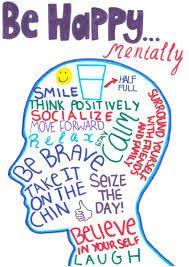 Be Happy...
Mentally
SMILE
HALF
FULL
THINK POSITIVELY
SOCIALIZE
MOVE FORWARD
Relax
STAY
CALM
SURROUND YOURSELF
WITH FRIENDS
AND FAMILY
BE BRAVE
TAKE IT
ON THE
CHIN
SEIZE
THE
DAY!
BELIEVE
IN YOURSELF
LAUGH